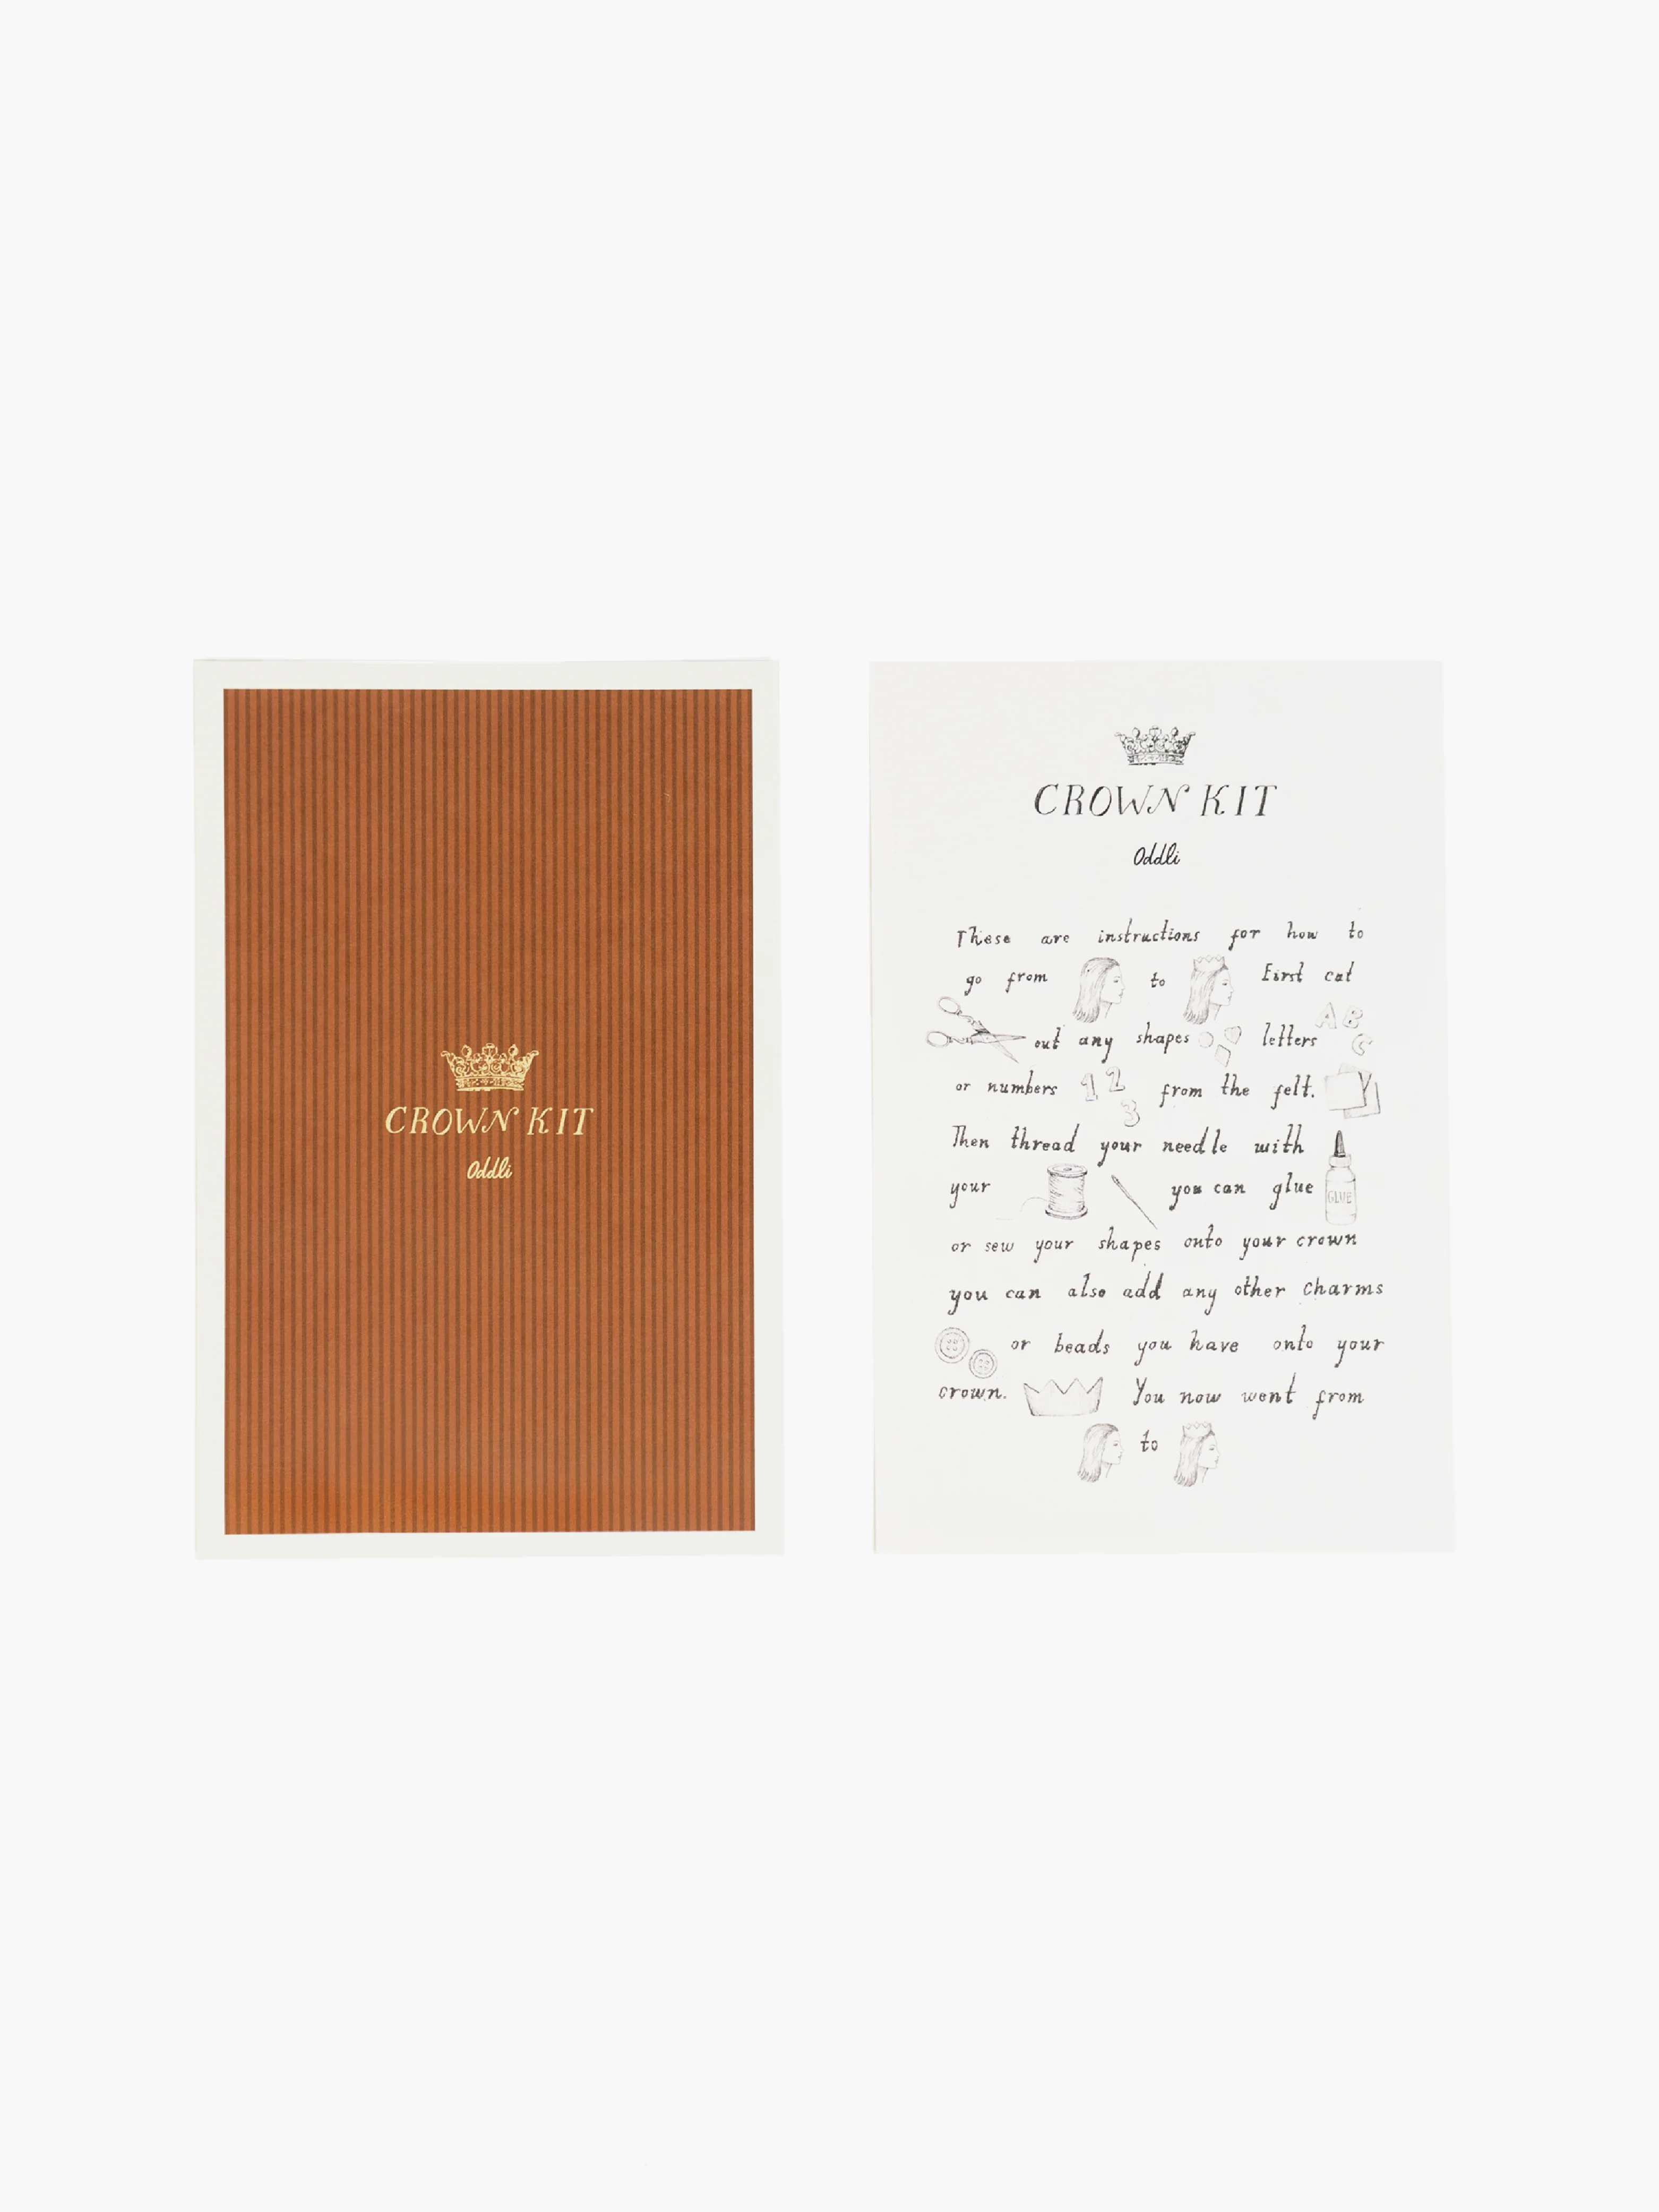 CROWN KIT
Oddli
CROWN KIT
Oddli
These are instructions for how to
go from to First cut
out any shapes letters A B
C
or numbers 1 2
3 from the felt.
Then thread your needle with
your you can glue GLUE
or sew your shapes onto your crown
you can also add any other charms
or beads you have onto your
crown. You now went from
to